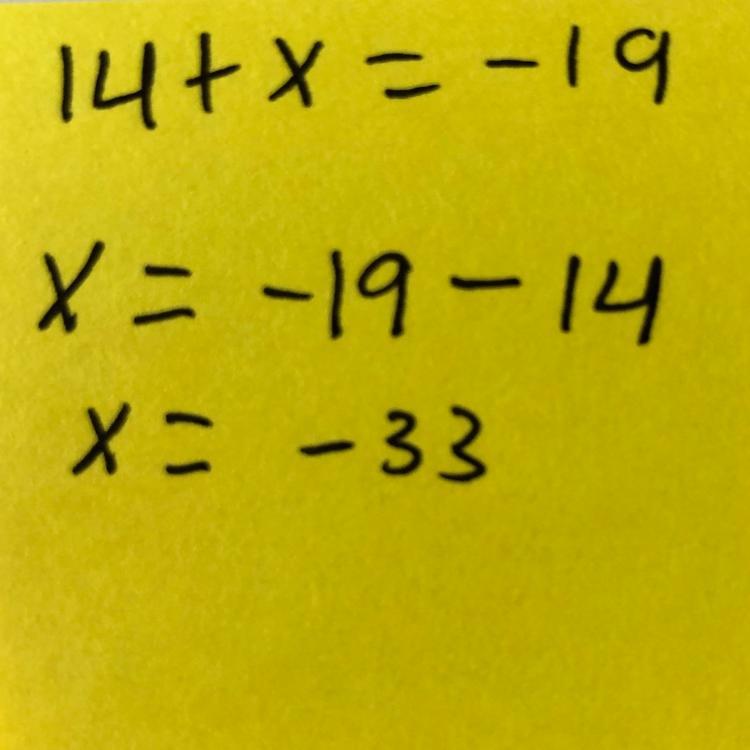 14 + x = -19
x = -19 - 14
x = -33